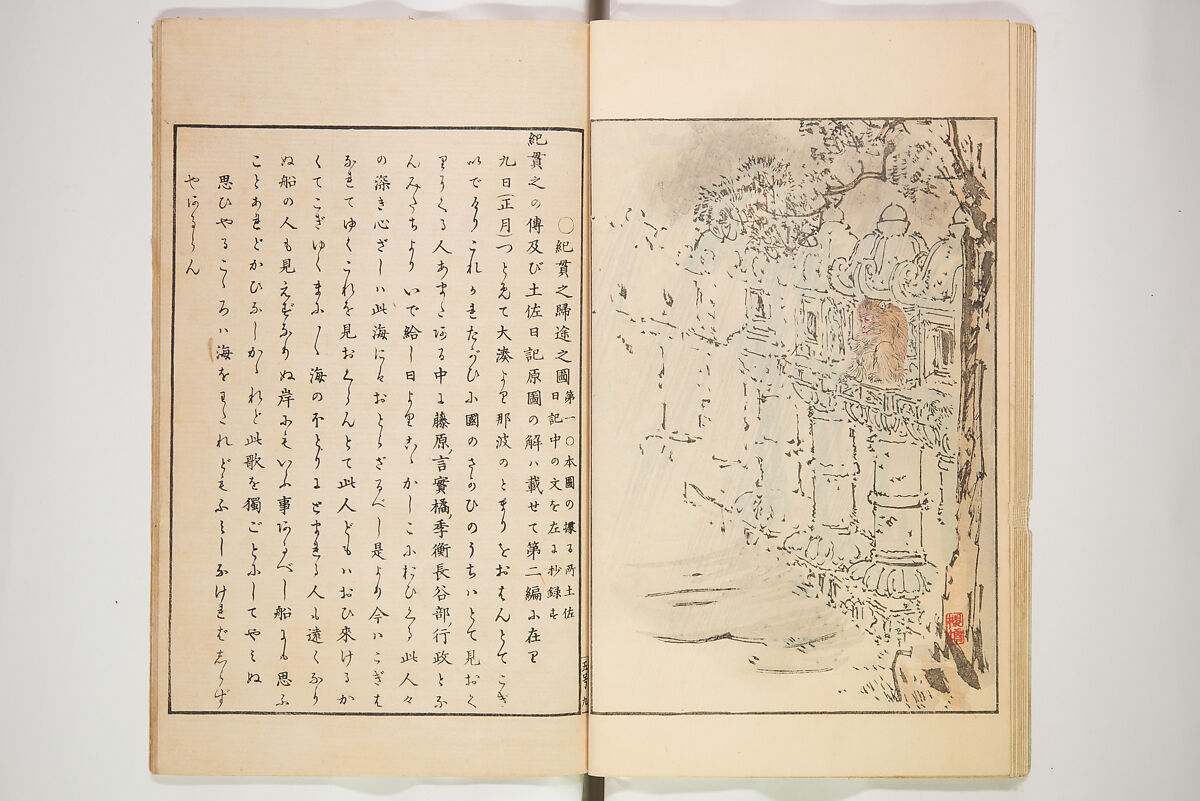 ○紀貫之歸途之圖 第一○本圖の據る所土佐
日記中の文を左に抄録す
紀貫之の傳及び土佐日記原圖の解ハ載せて第二編に在り
九日(正月)つとめて大湊より那波のとまりをおはんとてこぎ
いでけりこれかれたがひに國のさかひのうちハとて見おく
りにくる人あまたある中に藤原言實橘季衡長谷部行政とな
んみたちよりいで給し日よりこゝかしこにおひくる此人々
の深き心ざしハ此海にハおとらざるべし是より今ハこぎは
なれてゆくこれを見おくらんとて此人どもハおひ來けるか
くてこぎゆくまに〳〵海のほとりにとまれる人も遠くなり
ぬ船の人も見えずなりぬ岸にもいふ事あるべし船にも思ふ
ことあれどかひなしかゝれど此歌を獨ごとにしてやみぬ
思ひやるこゝろハ海をわたれどもふみしなければしらず
やあるらん